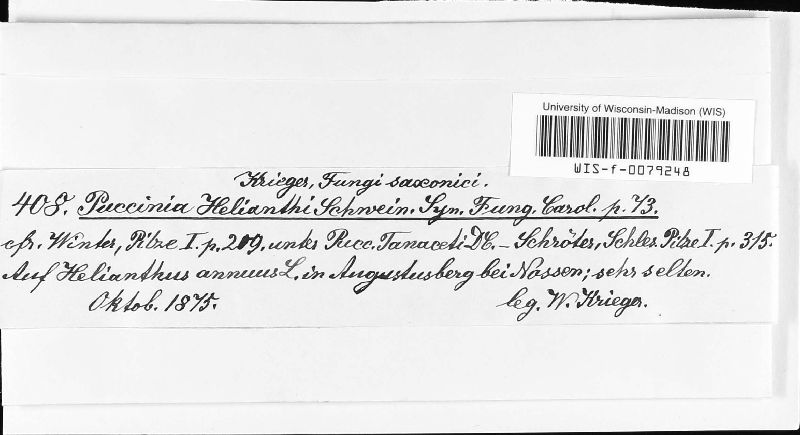 University of Wisconsin-Madison (WIS)
WIS-f-0079248
Krieger, Fungi saxonici.
408. Puccinia Helianthi Schwein. Syn. Fung. Carol. p. 73.
cfr. Winter, Pilze I. p. 209. unter Pucc. Tanaceti DC. – Schröter, Schles. Pilze I. p. 315.
Auf Helianthus annuus L. in Augustusberg bei Nossen; sehr selten.
Oktob. 1875. leg. W. Krieger.